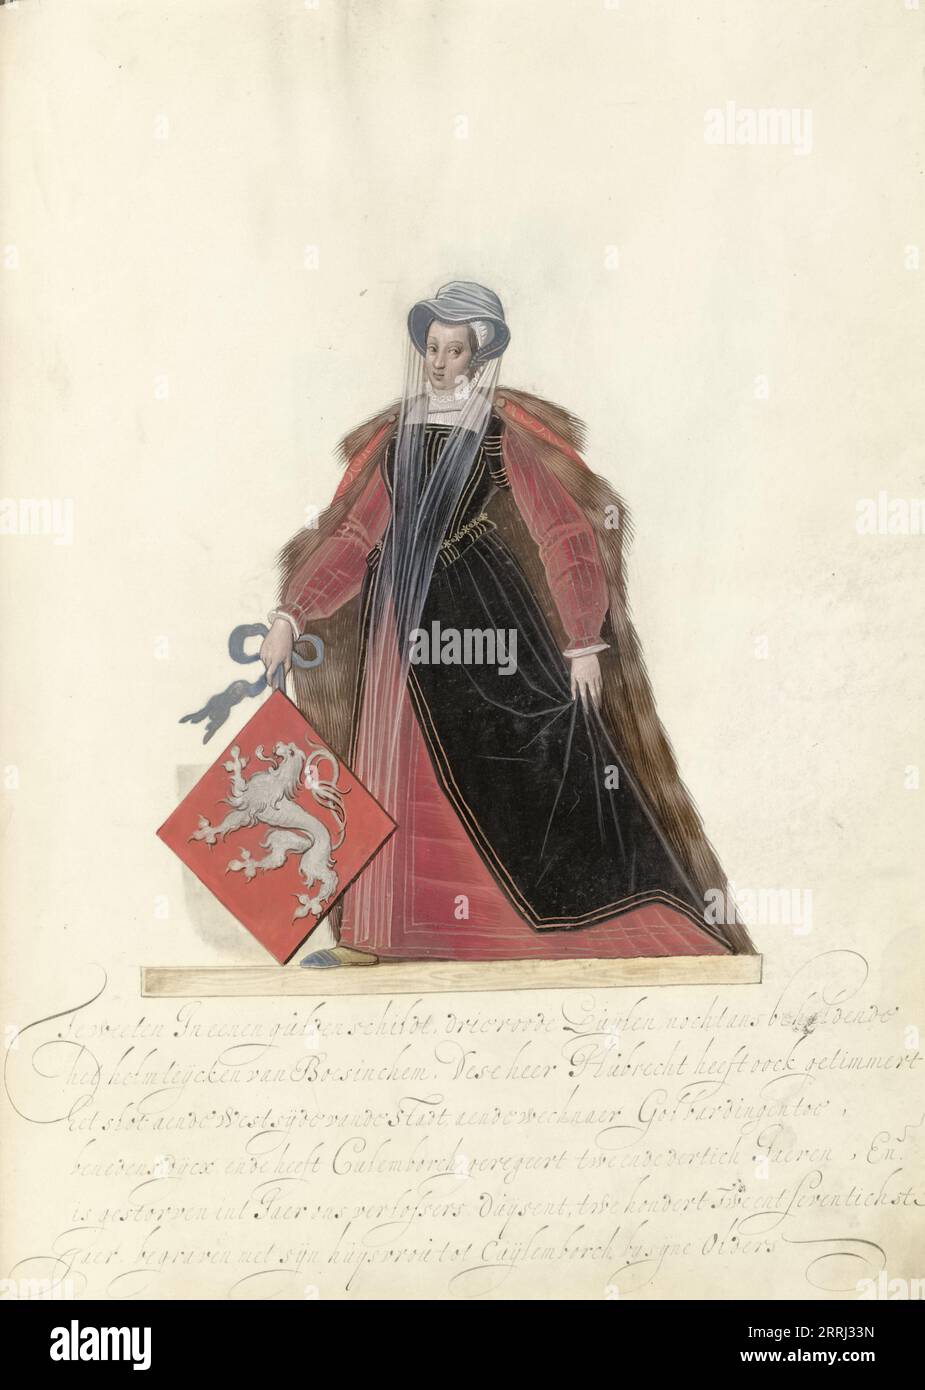 Te weeten In eenen gulden schildt, drie roode Luijlen, nochtans behoudende
het helmteycken van Boesinchem. Dese heer Hubrecht heeft oock getimmert
het slot aende Westsyde vande Stadt, aende wech naer Golbardingen toe,
beneden sdycx, ende heeft Culemborch geregeert twe ende dertich Jaeren, En
is gestorven int Jaer ons verlossers Duysent, twe hondert Tweent seventichste
Jaer begraven met syn huysvrou tot Cuijlemborch by syne Olders
alamy
alamy
Image ID: 2RRJ33N
www.alamy.com